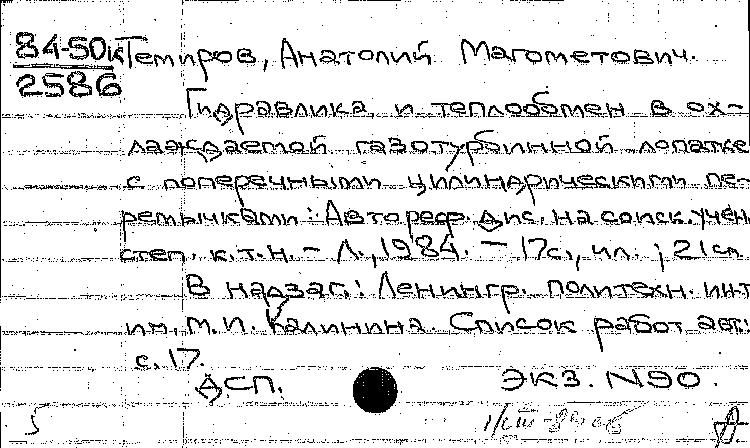 84-50к Темиров, Анатолий Магометович.
2586
Гидравлика и теплообмен в ох-
лаждаемой газотурбинной лопатке
с поперечными цилиндрическими пе-
ремычками: Автореф. дис. на соиск. учен.
степ. к.т.н. - Л., 1984. - 17с., ил.; 21 см
В надзаг.: Ленингр. политехн. ин-т
им. М.И. Калинина. Список работ авт.:
с. 17.
ДСП. Экз. N90.